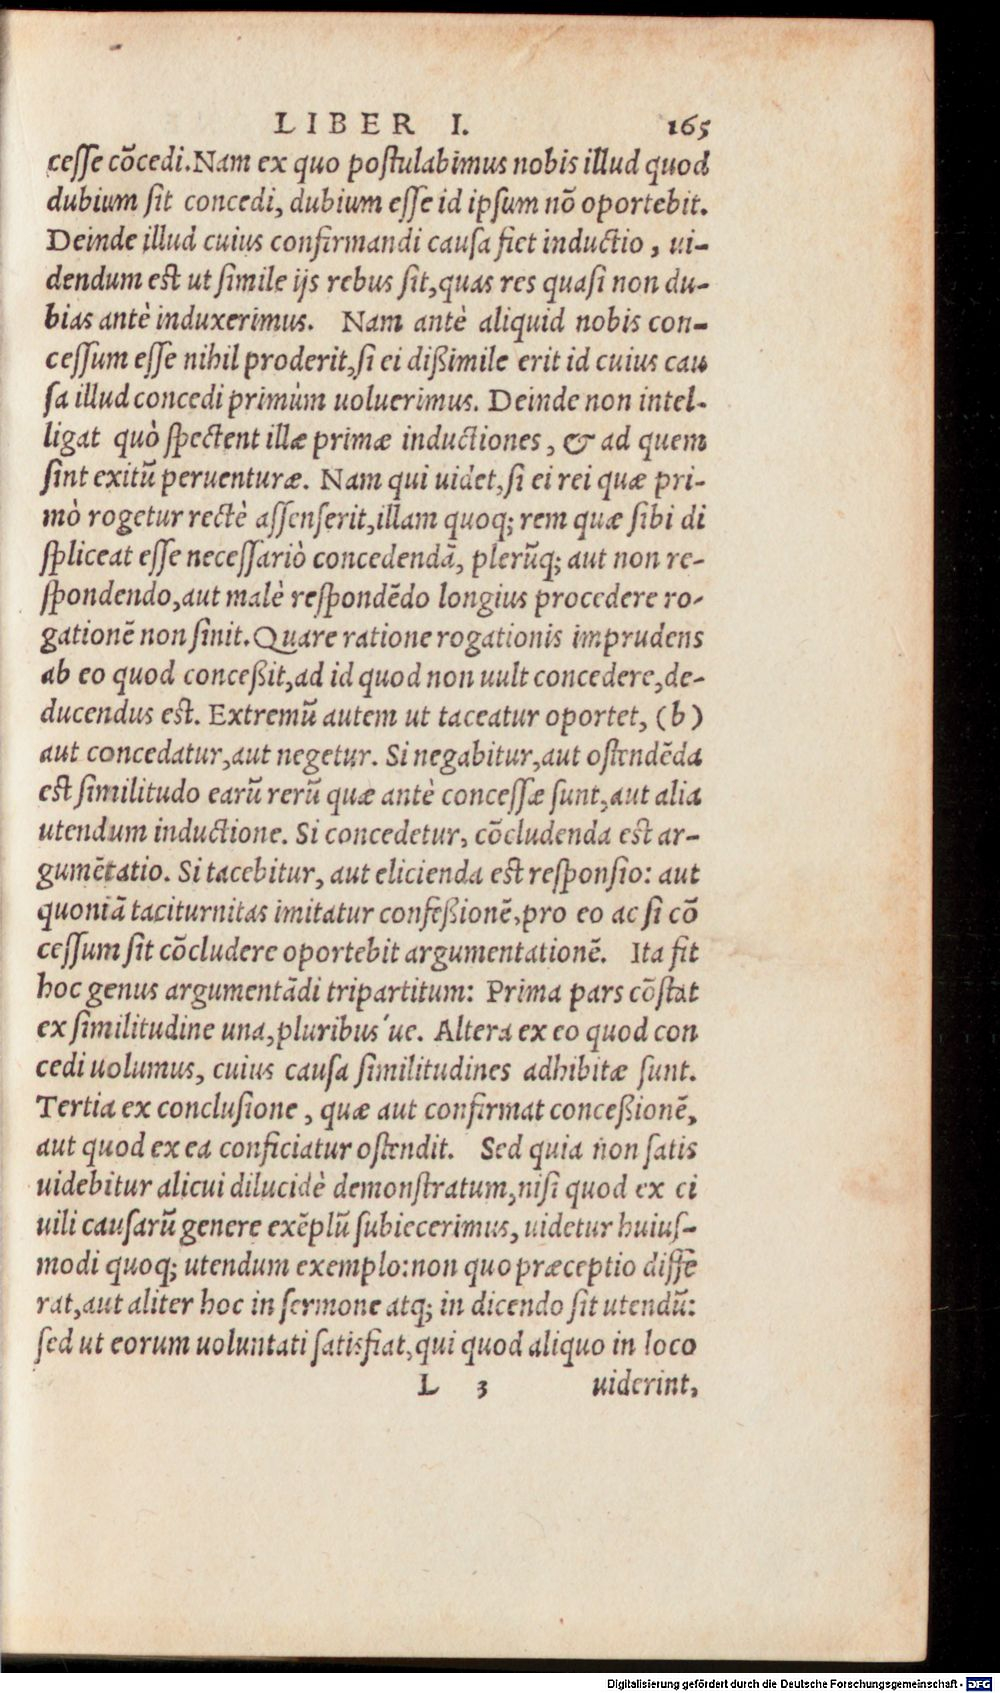 LIBER I. 165
cesse cōcedi. Nam ex quo postulabimus nobis illud quod
dubium sit concedi, dubium esse id ipsum nō oportebit.
Deinde illud cuius confirmandi causa fiet inductio, ui-
dendum est ut simile ijs rebus sit, quas res quasi non du-
bias antè induxerimus. Nam antè aliquid nobis con-
cessum esse nihil proderit, si ei dißimile erit id cuius cau
sa illud concedi primùm uoluerimus. Deinde non intel-
ligat quò spectent illæ primæ inductiones, & ad quem
sint exitū peruenturæ. Nam qui uidet, si ei rei quæ pri-
mò rogetur rectè assenserit, illam quoq; rem quæ sibi di
spliceat esse necessariò concedendā, plerūq; aut non re-
spondendo, aut malè respondēdo longius procedere ro-
gationē non sinit. Quare ratione rogationis imprudens
ab eo quod conceßit, ad id quod non uult concedere, de-
ducendus est. Extremū autem ut taceatur oportet, (b)
aut concedatur, aut negetur. Si negabitur, aut ostendēda
est similitudo earū rerū quæ antè concessæ sunt, aut alia
utendum inductione. Si concedetur, cōcludenda est ar-
gumētatio. Si tacebitur, aut elicienda est responsio: aut
quoniā taciturnitas imitatur confeßionē, pro eo ac si cō
cessum sit cōcludere oportebit argumentationē. Ita fit
hoc genus argumentādi tripartitum: Prima pars cōstat
ex similitudine una, pluribus ́ue. Altera ex eo quod con
cedi uolumus, cuius causa similitudines adhibitæ sunt.
Tertia ex conclusione, quæ aut confirmat conceßionē,
aut quod ex ea conficiatur ostendit. Sed quia non satis
uidebitur alicui dilucidè demonstratum, nisi quod ex ci
uili causarū genere exēplū subiecerimus, uidetur huius-
modi quoq; utendum exemplo: non quo præceptio diffe
rat, aut aliter hoc in sermone atq; in dicendo sit utendū:
sed ut eorum uoluntati satisfiat, qui quod aliquo in loco
L 3 uiderint,
Digitalisierung gefördert durch die Deutsche Forschungsgemeinschaft - DFG